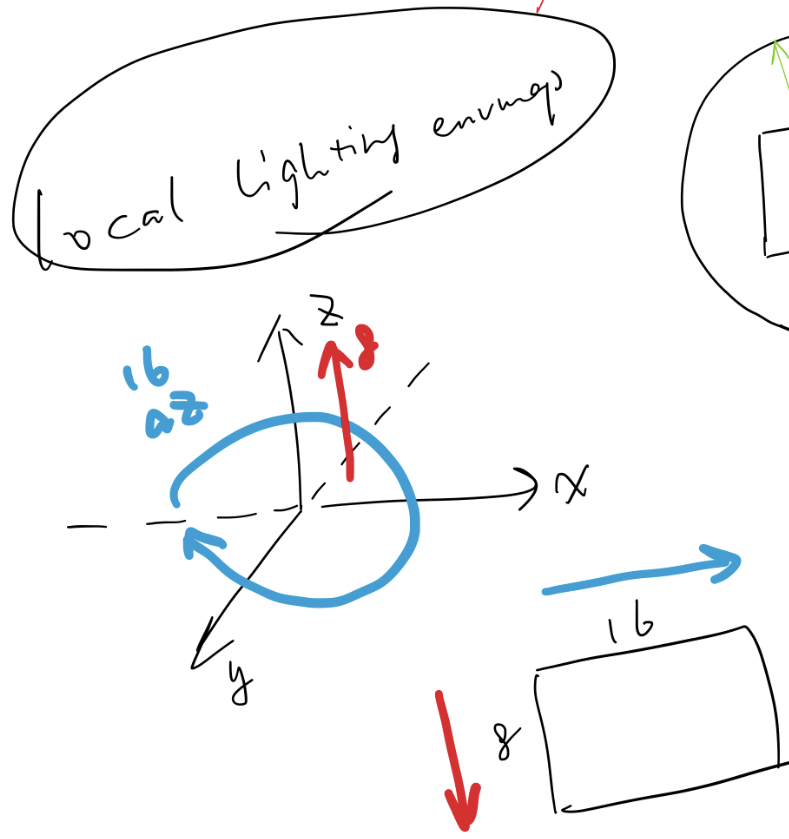 local lighting envmap
z
8
16
az
x
y
16
8